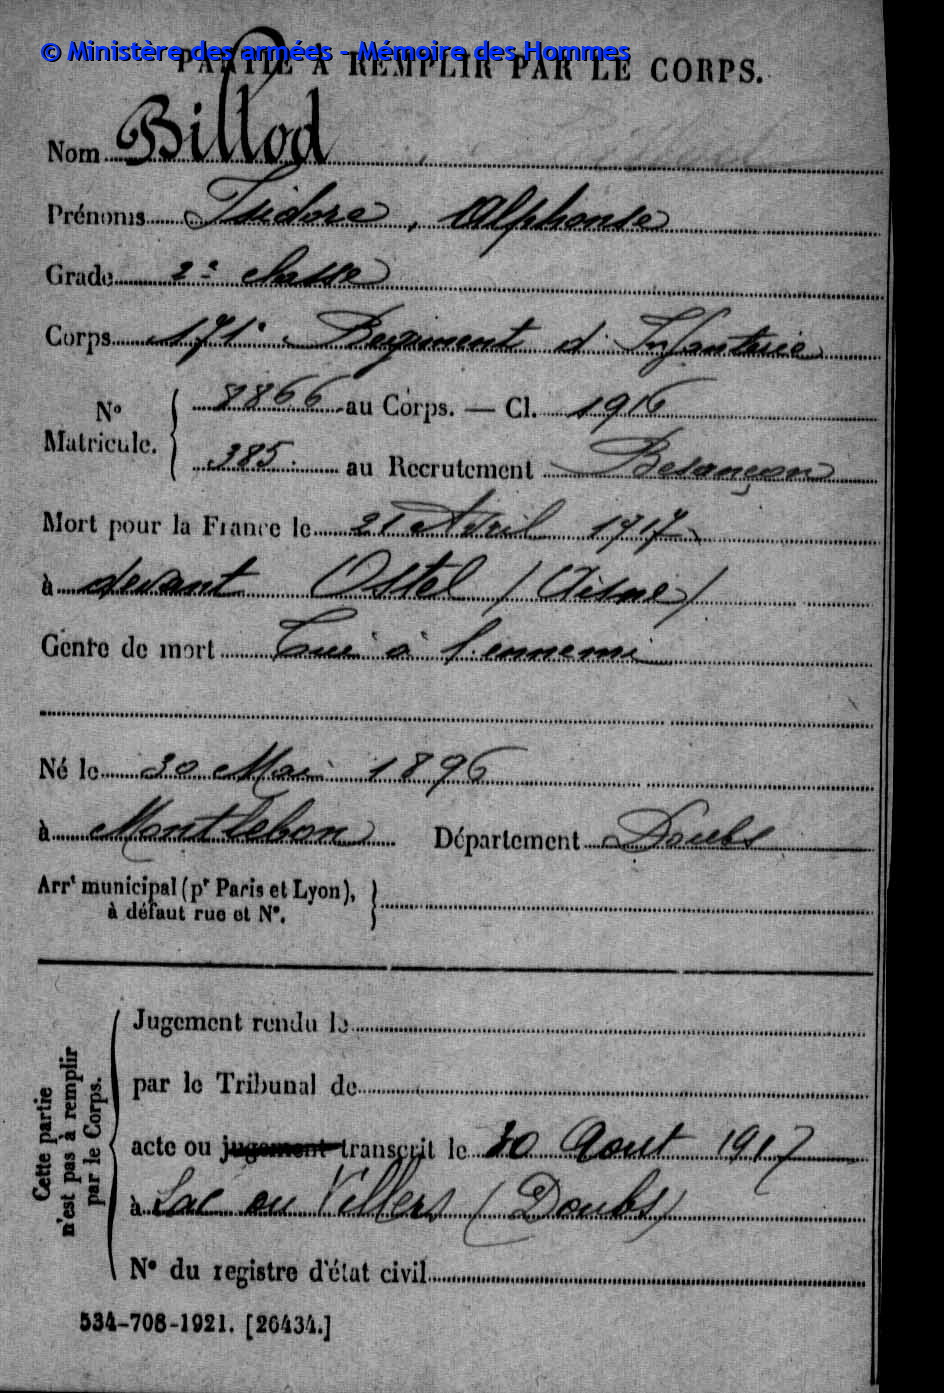 © Ministère des armées - Mémoire des Hommes
PARTIE À REMPLIR PAR LE CORPS.
Nom Billod
Prénoms Isidore, Alphonse
Grade 2e classe
Corps 171e Régiment d'Infanterie
No Matricule. { 8866 au Corps. — Cl. 1916
385. au Recrutement Besançon
Mort pour la France le 21 Avril 1917
à devant Ostel (Aisne)
Genre de mort Tué à l'ennemi
Né le 30 Mai 1896
à Montlebon Département Doubs
Arrt municipal (pr Paris et Lyon), à défaut rue et No. }
Cette partie n'est pas à remplir par le Corps.
Jugement rendu le
par le Tribunal de
acte ou jugement transcrit le 30 Aout 1917
à Lac ou Villers (Doubs)
No du registre d'état civil
534-708-1921. [26434.]